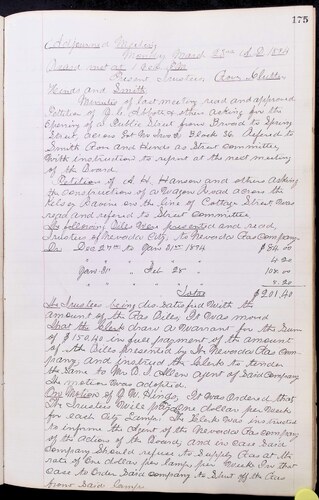 175
Adjourned Meeting
Monday March 23rd A.D. 1874
Board met at
Present Trustees
Kends and Smith
Minutes of last meeting read and approved
Petition of J. C. and others asking for the
opening of a Public Street from Broad to Spring
Street across Lot No Block 36. Refered to
Smith and Kends as Street Committee,
With instruction to report at the next meeting
of the Board.
Petition of A. H. Hanson and others asking
the construction of a Wagon Road across the
Kelsey Ravine on the line of Cottage Street was
read and refered to Street Committee
The following Bills were presented and read,
Trustees of Nevada City, To Nevada Gas Company
Dr Dec 20th to Jany 21st 1874 $84.00
" " " " " 4.20
Jany 21st " Feb 28" 108.00
" " " " 5.20
Total $201.40
The Trustees being dissatisfied With the
amount of the Gas Bills, It was moved
that the Clerk draw a Warrant for the Sum
of $150.40 in full payment of the amount
of the Bills presented by the Nevada Gas Com-
pany, and instruct the Clerk to tender
the same to Mr B. J. Allen Agent of Said Company
The motion was adopted.
On Motion of J. W. Hinds, it was Ordered that
the Trustees Will pay One dollar per Week
for each City Lamp. The Clerk was instructed
to inform the Agent of the Nevada Gas Company
of the action of the Board, and in case Said
Company should refuse to Supply Gas at the
rate of One dollar per lamp, per Week In that
case to Order Said Company to Shut off the Gas
from Said Lamps